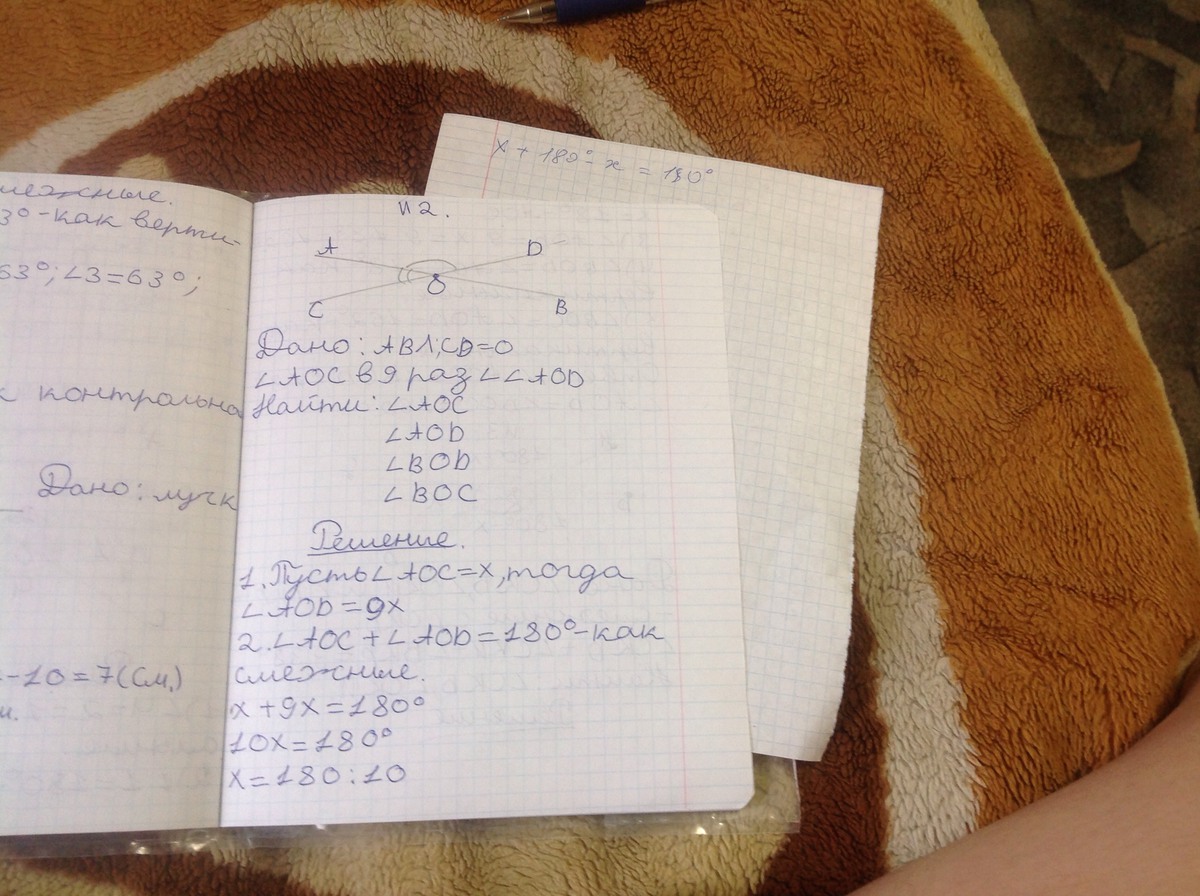 x + 180° - x = 180°
межные.
3° - как верти-
63°; ∠3=63°;
контрольна
Дано: лучк
-10=7(см.)
и.
и 2.
A D
O
C B
Дано: AB∧;CD=O
∠AOC в 9 раз ∠ ∠AOD
Найти: ∠AOC
∠AOD
∠BOD
∠BOC
Решение.
1. Пусть ∠AOC=x, тогда
∠AOD=9x
2. ∠AOC+∠AOD=180°-как
смежные.
x+9x=180°
10x=180°
x=180:10